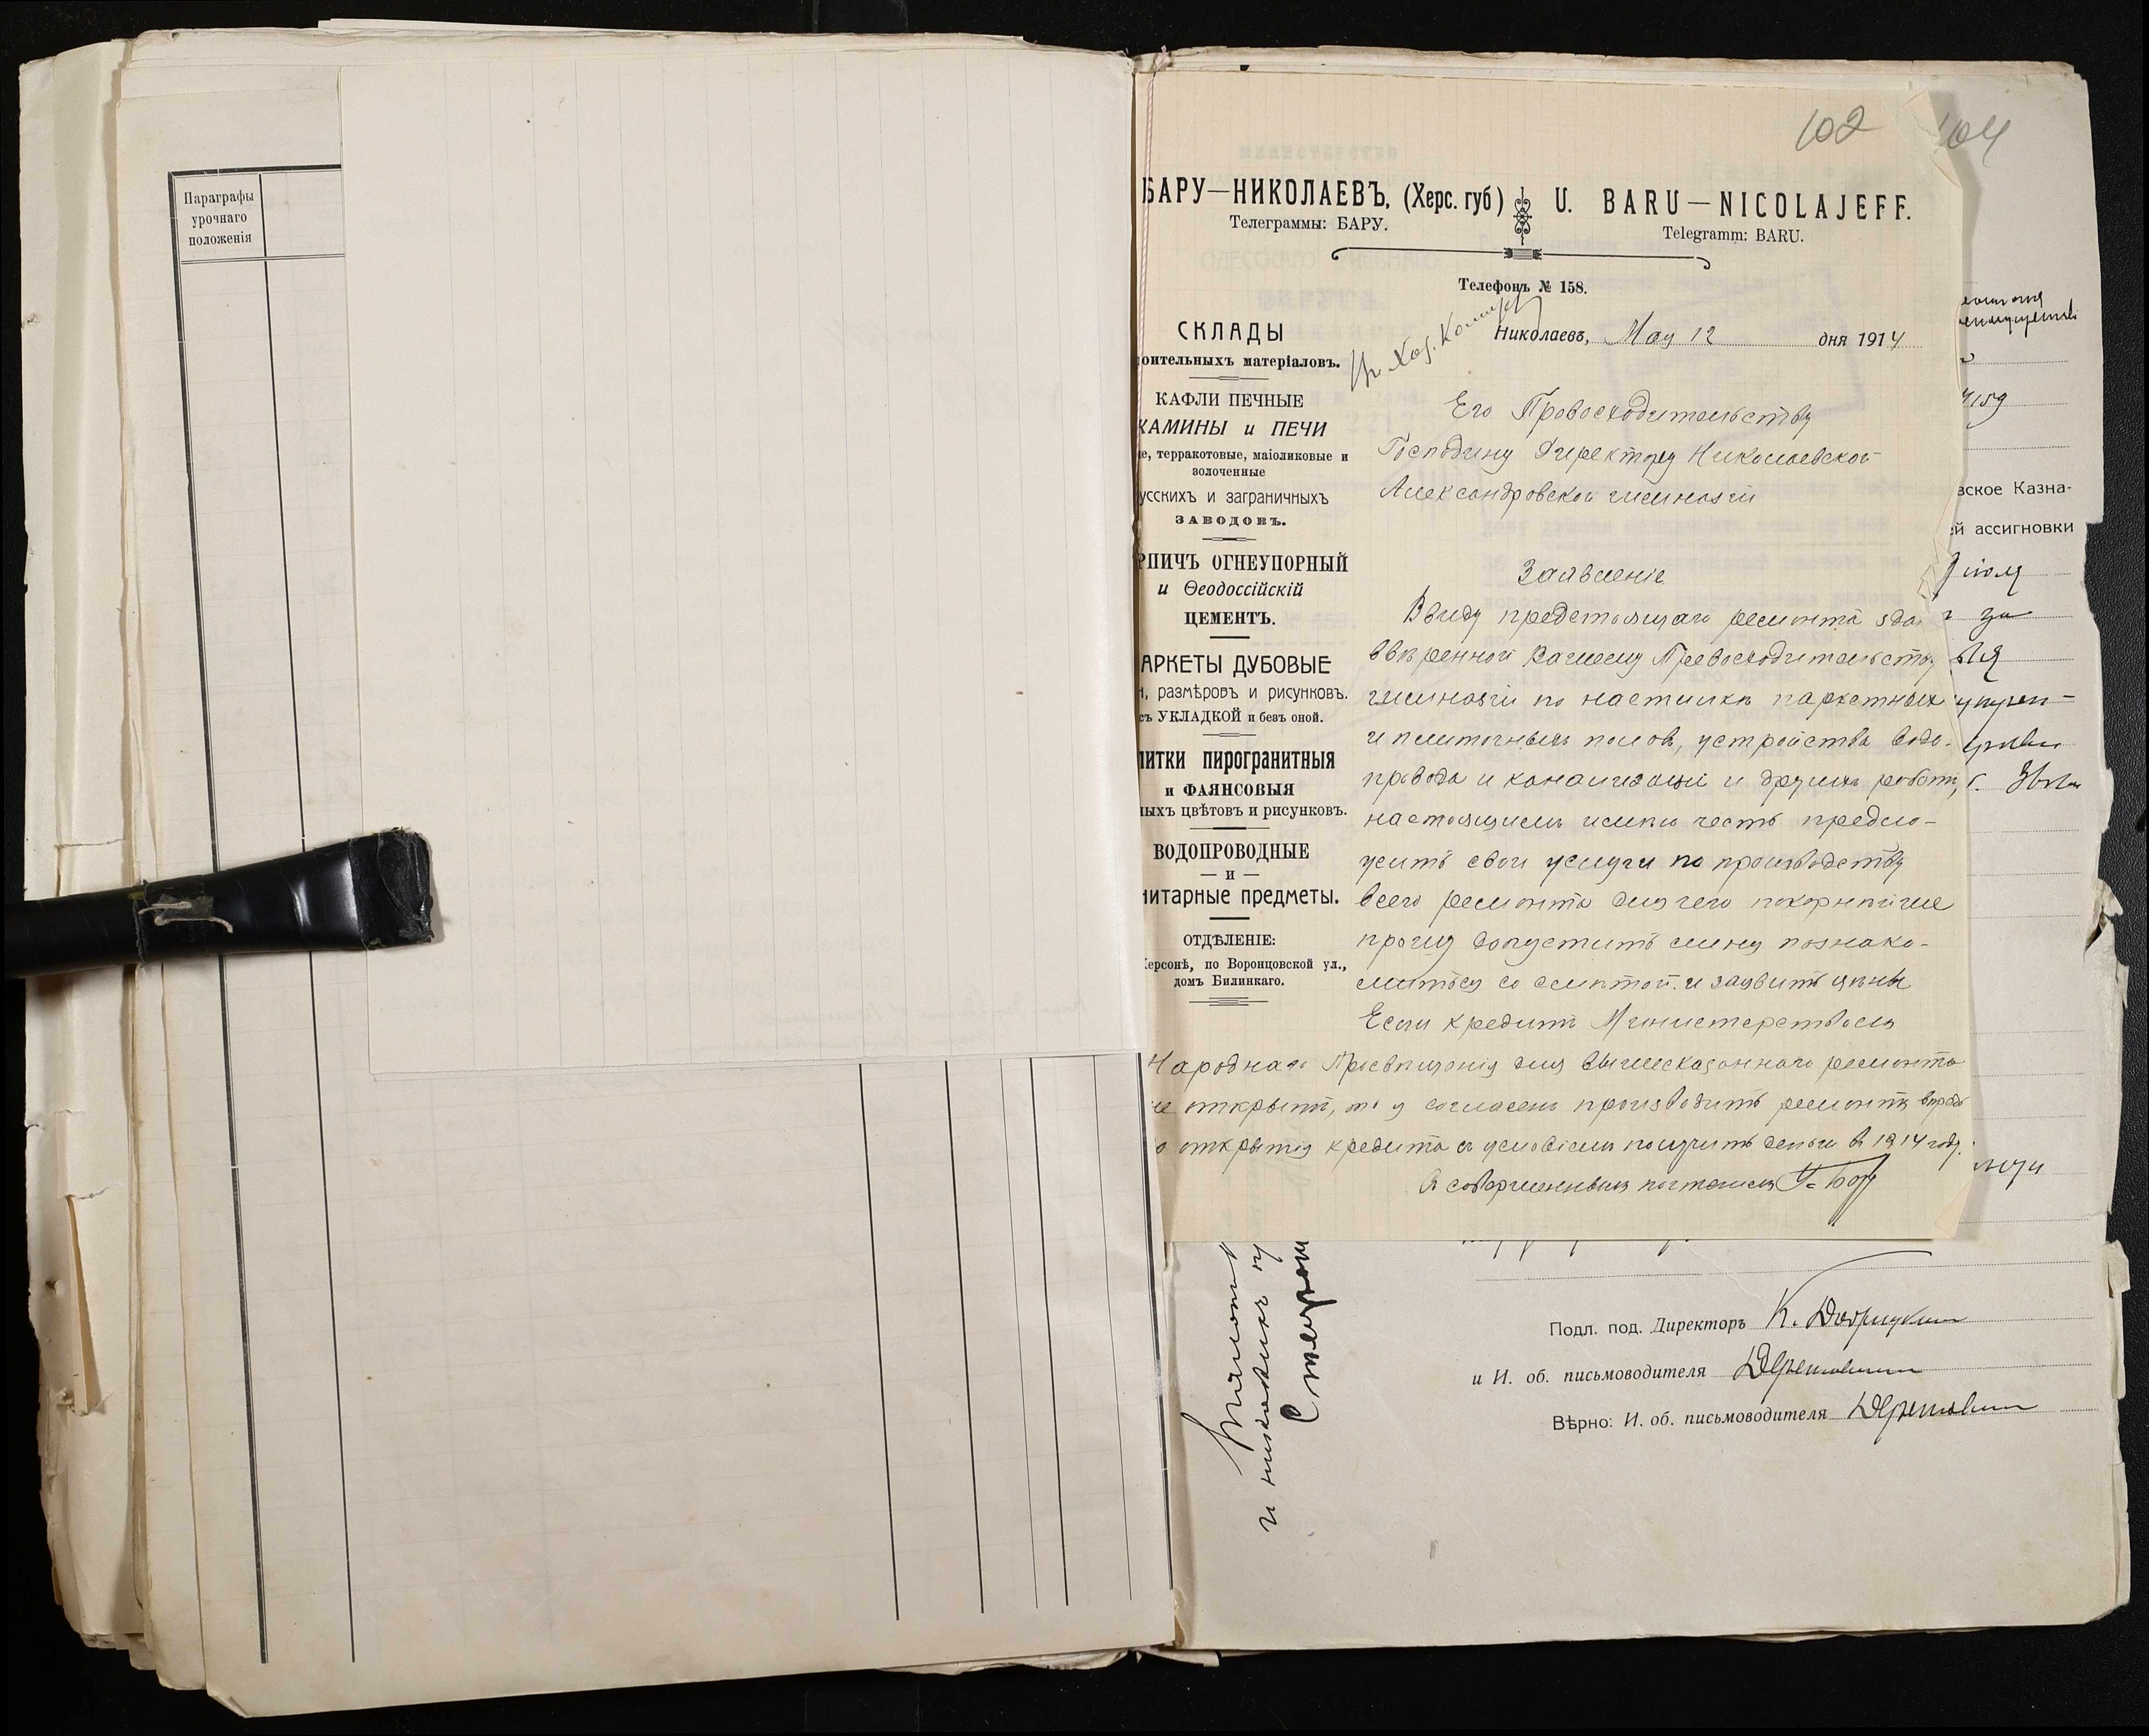 Параграфы
урочнаго
положенія
102
104
БАРУ—НИКОЛАЕВЪ, (Херс. губ)
Телеграммы: БАРУ.
U. BARU—NICOLAJEFF.
Telegramm: BARU.
Телефонъ № 158.
Николаевъ, Мая 12 дня 1914
СКЛАДЫ
оительныхъ матеріаловъ.
КАФЛИ ПЕЧНЫЕ
КАМИНЫ и ПЕЧИ
е, терракотовые, маіоликовые и
золоченные
усскихъ и заграничныхъ
ЗАВОДОВЪ.
РПИЧЪ ОГНЕУПОРНЫЙ
и Ѳеодоссійскій
ЦЕМЕНТЪ.
АРКЕТЫ ДУБОВЫЕ
размѣровъ и рисунковъ.
съ УКЛАДКОЙ и безъ оной.
ИТКИ ПИРОГРАНИТНЫЯ
и ФАЯНСОВЫЯ
ныхъ цвѣтовъ и рисунковъ.
ВОДОПРОВОДНЫЕ
— и —
нитарные предметы.
ОТДѢЛЕНІЕ:
Херсонѣ, по Воронцовской ул.,
домъ Билинкаго.
Его Превосходительству
Господину Директору Николаевской
Александровской гимназіи
Заявленіе
Ввиду предстоящаго ремонта зда
ввѣренной Вашему Превосходительству
гимназіи по настилкѣ паркетныхъ
и плиточныхъ половъ, устройства водо-
провода и канализаціи и другихъ работъ,
настоящимъ имѣю честь предло-
жить свои услуги по производству
всего ремонта для чего покорнѣйше
прошу допустить мину познако-
миться со смѣтой и заявить цѣны
Если кредитъ Министерствомъ
Народнаго Просвѣщенія для вышесказаннаго ремонта
не открытъ, то я согласенъ производить ремонтъ впредь
о открытія кредита съ условіемъ получить деньги въ 1914 году.
Съ совершеннымъ почтеніемъ У. Бару
вское Казна-
ей ассигновки
Подл. под. Директоръ К.
и И. об. письмоводителя
Вѣрно: И. об. письмоводителя